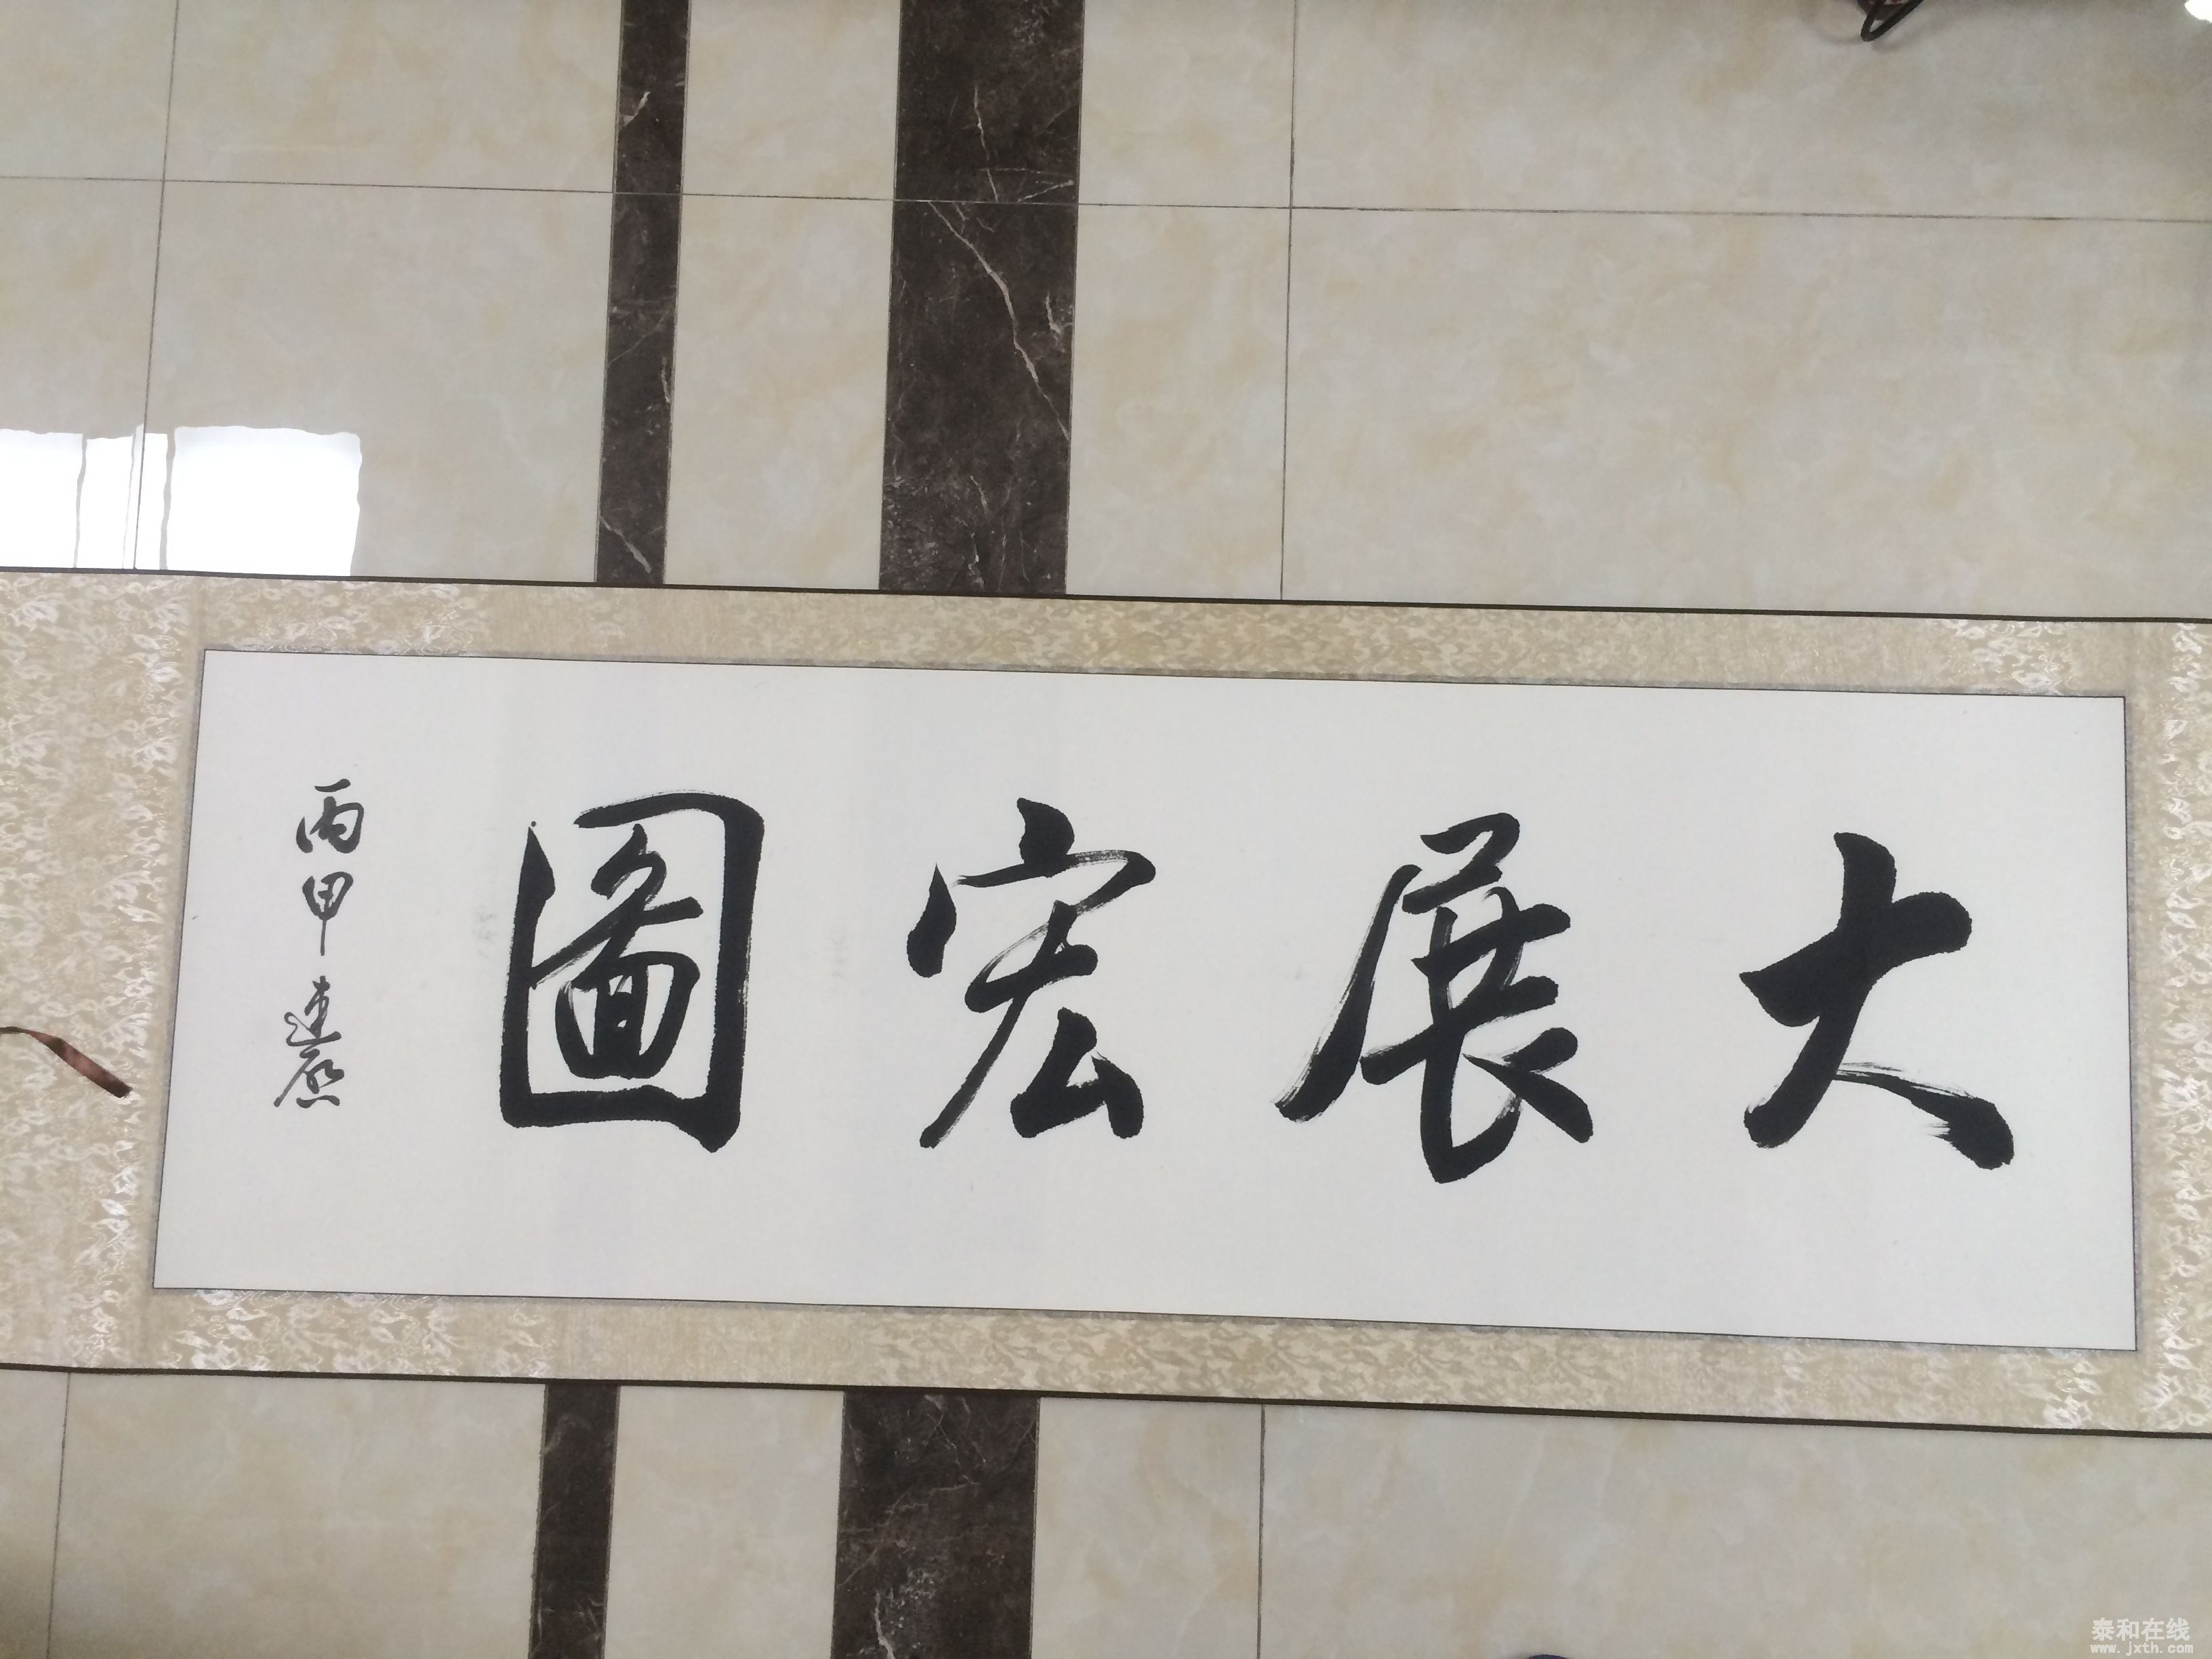 大展宏圖
丙申
泰和在线
www.jxth.com